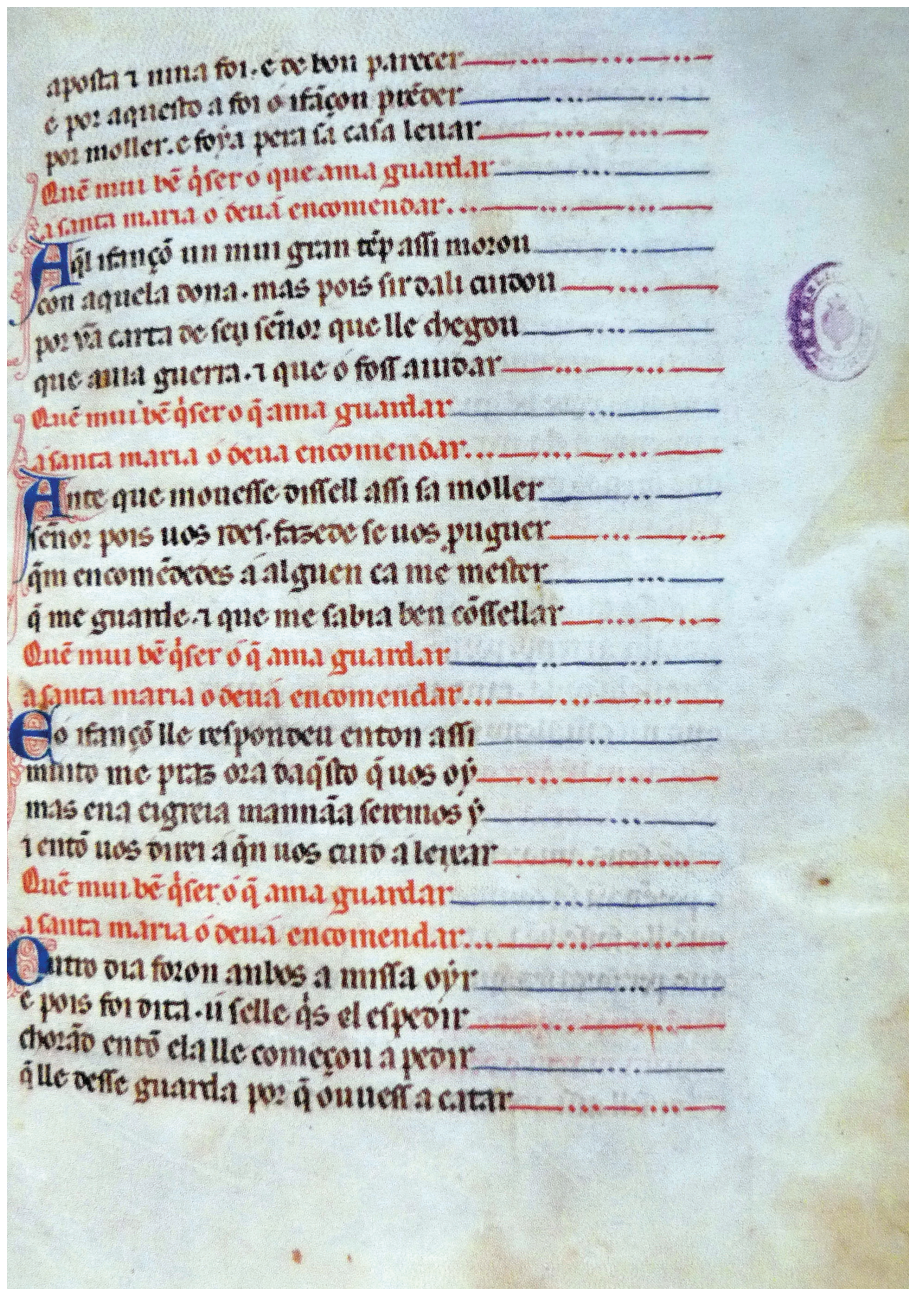 aposta ⁊ nĩna foi. e de bon parecer
e por aquesto a foi o ifãçon prẽder
por moller. e foya pera sa casa leuar
Quẽ mui bẽ q̇ser o que ama guardar
a santa maria o deuá encomendar
Aq̃l ifançõ un mui gran tẽp assi morou
con aquela dona. mas pois sir dali cuidou
por vã carta de seu señor que lle chegou
que auia guerra. ⁊ que o foss aiudar
Quẽ mui bẽ q̇ser o q̃ ama guardar
a santa maria o deua encomendar
Ante que mouesse dissell assi sa moller
señor pois uos ides. fazede se uos puguer
q̃m encomẽdedes a alguen ca me mester
q̃ me guarde. ⁊ que me sabia ben cõssellar
Quẽ mui bẽ q̇ser o q̃ ama guardar
a santa maria o deuá encomendar
E o ifançõ lle respondeu enton assi
muito me praz ora daq̃sto q̃ uos oẏ
mas ena eigreia mannãa seremos ẏ
⁊ entõ uos direi a q̃n uos cuid a leixar
Quẽ mui bẽ q̇ser o q̃ ama guardar
a santa maria o deuá encomendar
Outro dia foron anbos a missa oẏr
e pois foi dita. u selle q̇s el espedir
chorãd entõ ela lle começou a pedir
q̃ lle desse guarda por q̃ ouuess a catar